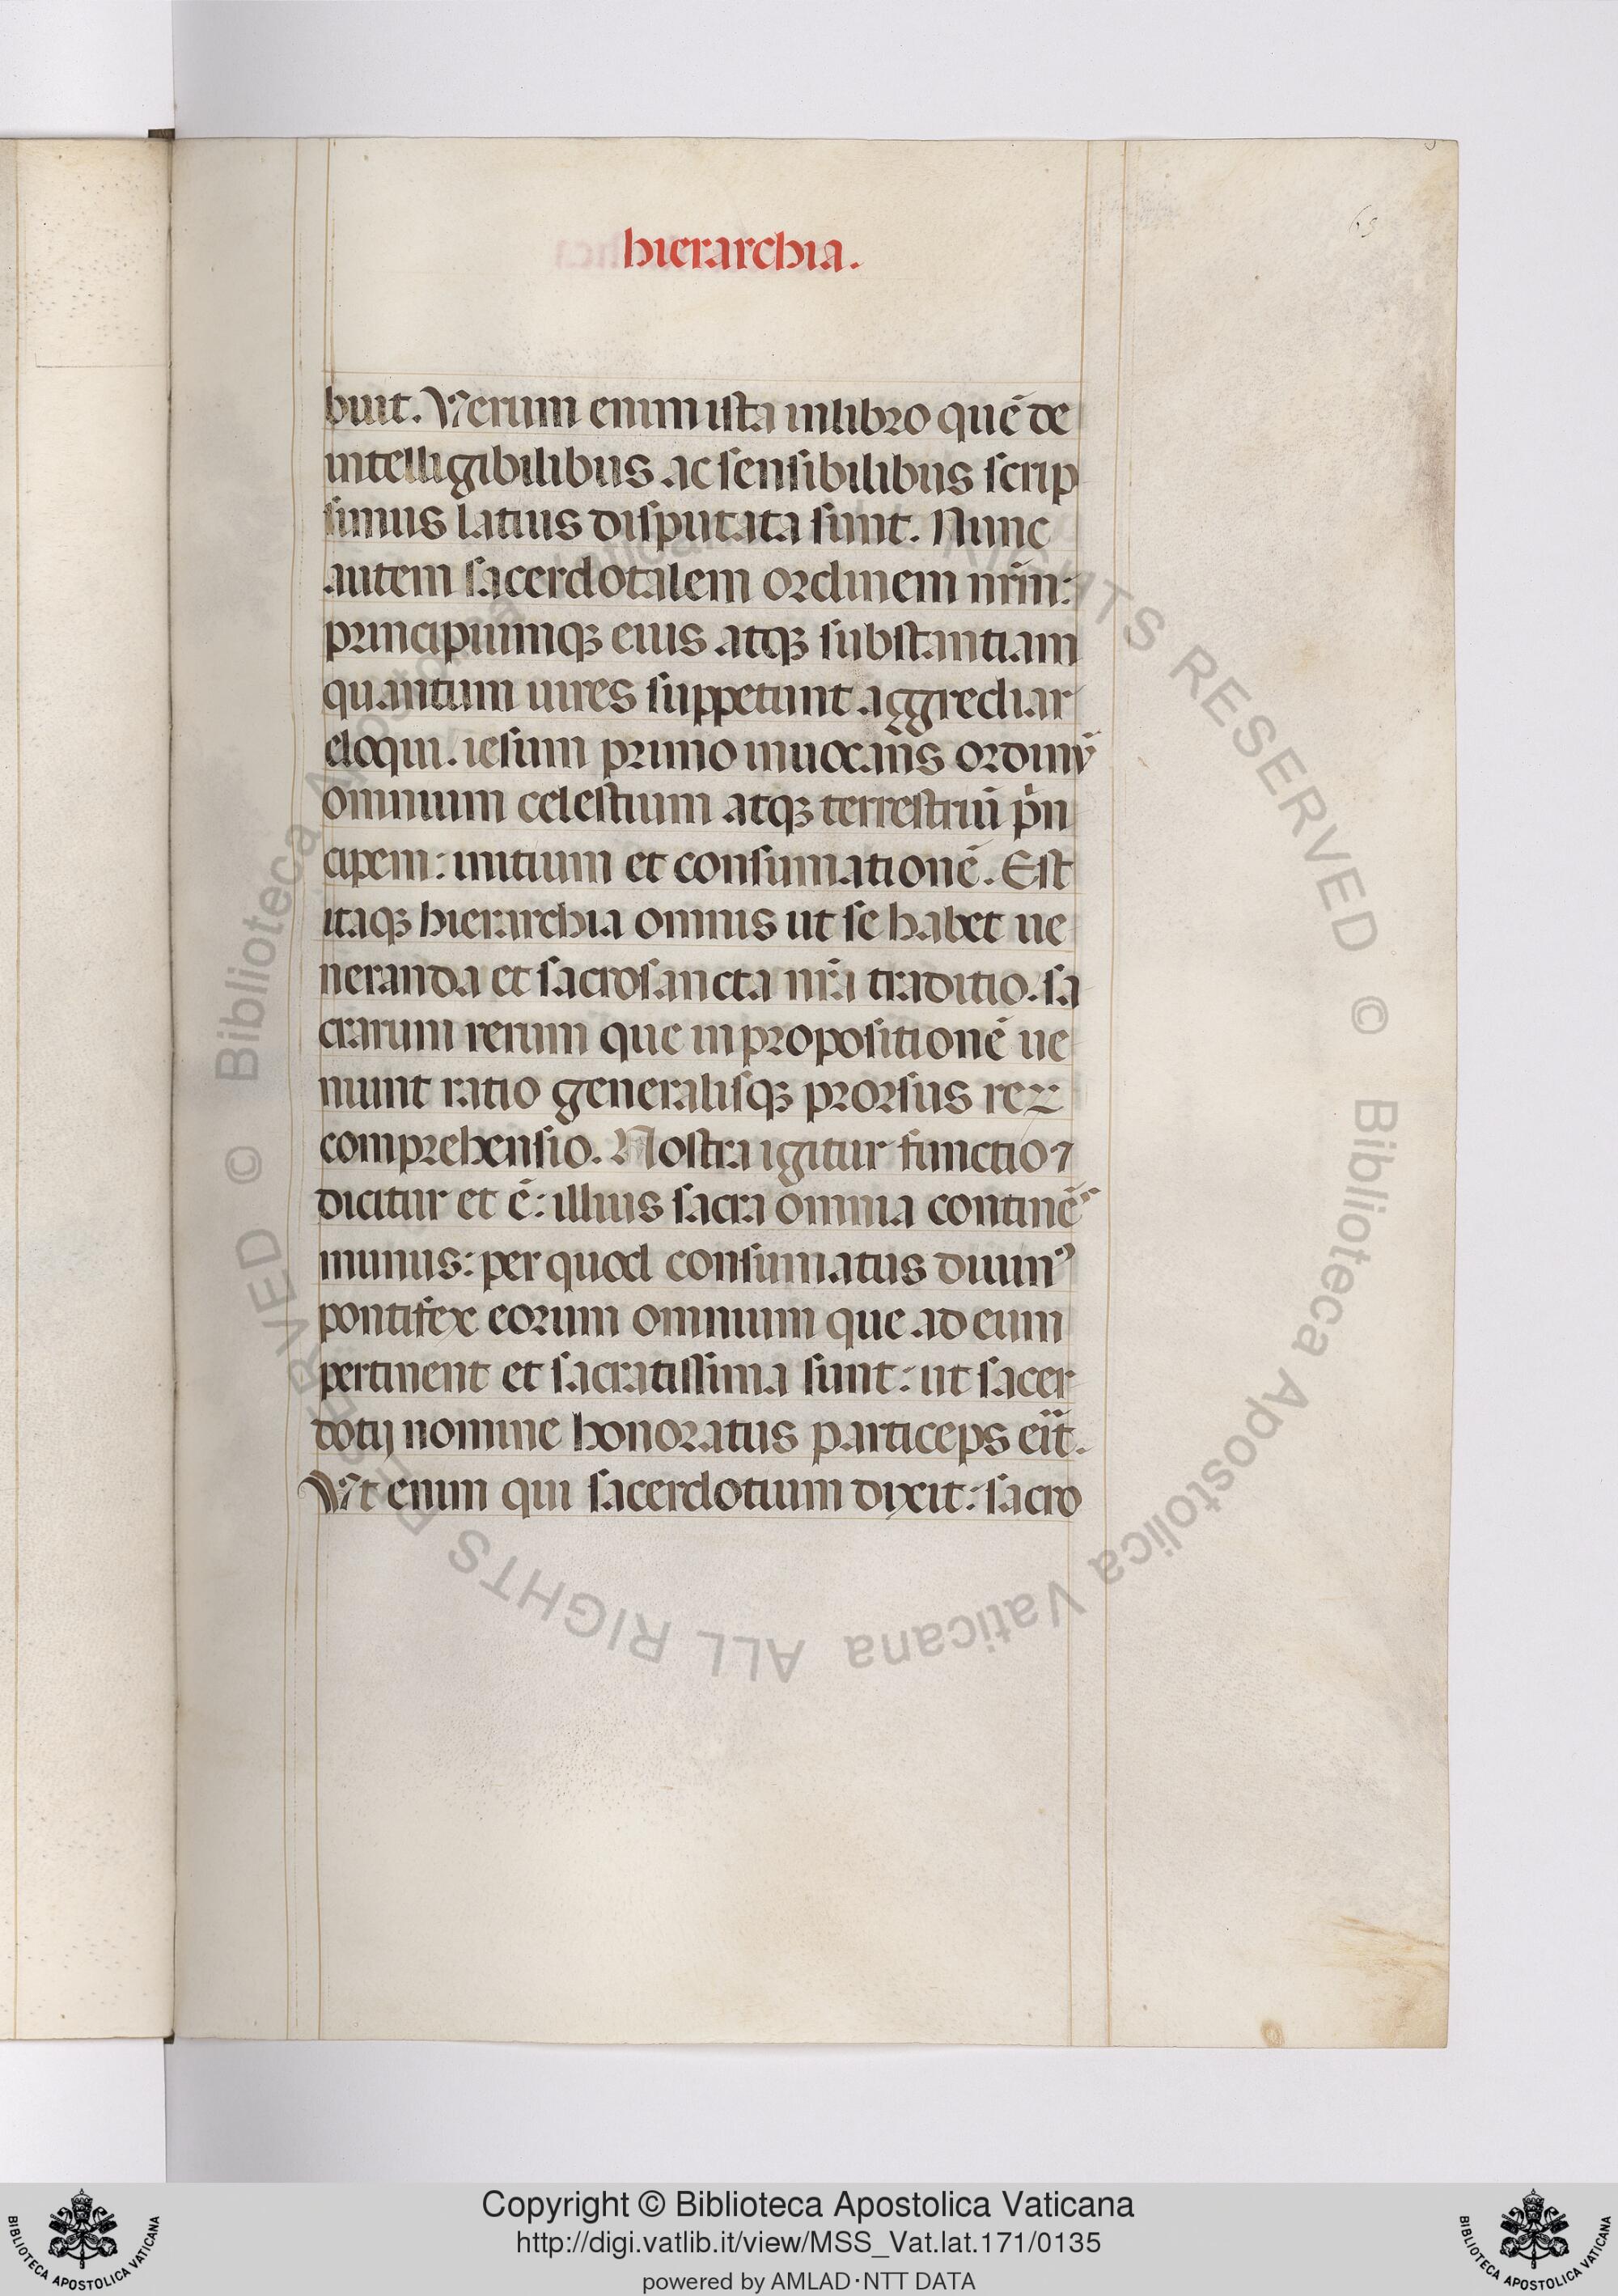 63
hierarchia.
buit. Verum enim ista inlibro quē de
intelligibilibus ac sensibilibus scrip
simus latius disputata sunt. Nunc
autem sacerdotalem ordinem nr̄m:
principiumqꝫ eius atqꝫ substantiam
quantum uires suppetunt aggrediar
eloqui. iesum primo inuocan̄s ordinū
omnium celestium atqꝫ terrestriū p̄n
cipem: initium et consumationē. Est
itaqꝫ hierarchia omnis ut se habet ue
neranda et sacrosancta nr̄a traditio. sa
crarum rerum que in propositionē ue
niunt ratio generalisqꝫ prorsus reꝝ
comprehensio. Nostra igitur functio ⁊
dicitur et ē: illius sacra omnia continē̄s
munus: per quod consumatus diuinꝰ
pontifex eorum omnium que ad eum
pertinent et sacratissima sunt: ut sacer
dotij nomine honoratus particeps eīt.
Vt enim qui sacerdotium dixit: sacro
© Biblioteca Apostolica Vaticana ALL RIGHTS RESERVED
© Biblioteca Apostolica Vaticana ALL RIGHTS RESERVED
Copyright © Biblioteca Apostolica Vaticana
http://digi.vatlib.it/view/MSS_Vat.lat.171/0135
powered by AMLAD·NTT DATA
BIBLIOTECA APOSTOLICA VATICANA
BIBLIOTECA APOSTOLICA VATICANA